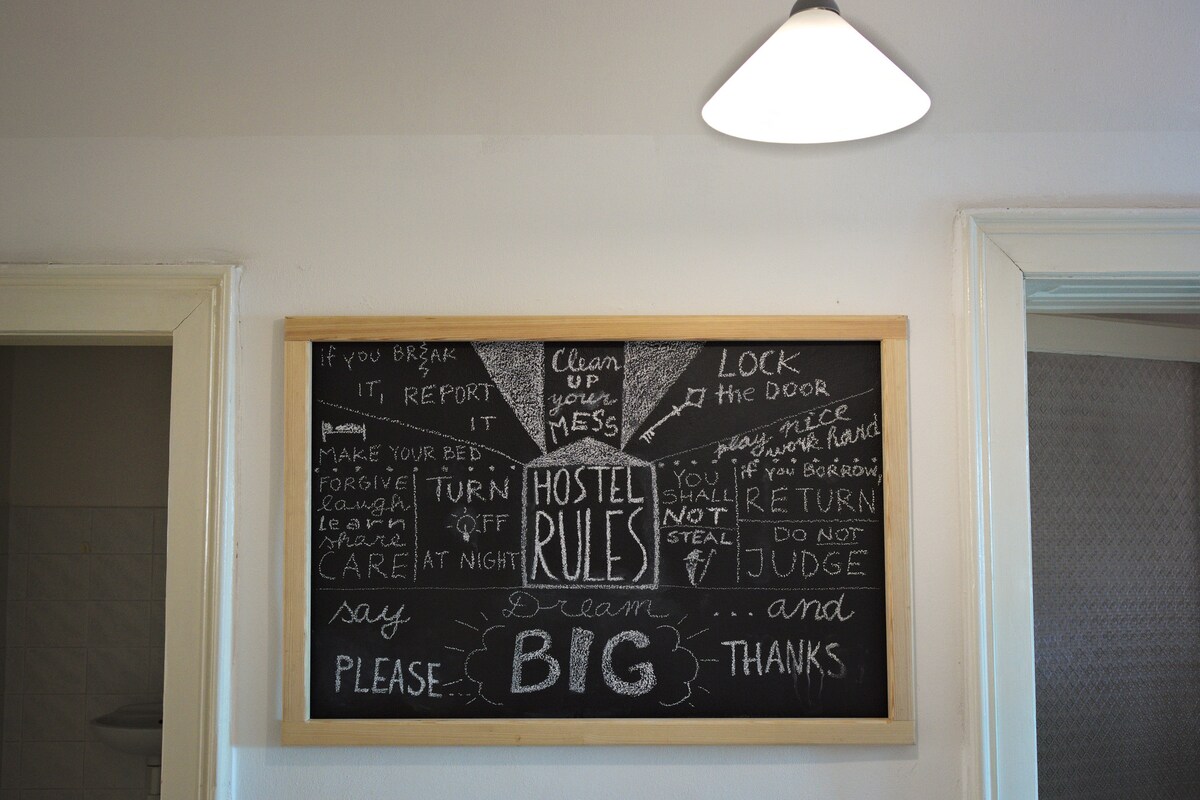 if you BREAK
IT, REPORT
IT
Clean
UP
your
MESS
LOCK
the DOOR
play nice
work hard
MAKE YOUR BED
FORGIVE
laugh
Learn
share
CARE
TURN
OFF
AT NIGHT
HOSTEL
RULES
YOU
SHALL
NOT
STEAL
if you BORROW,
RETURN
DO NOT
JUDGE
say
PLEASE...
Dream
BIG
... and
THANKS